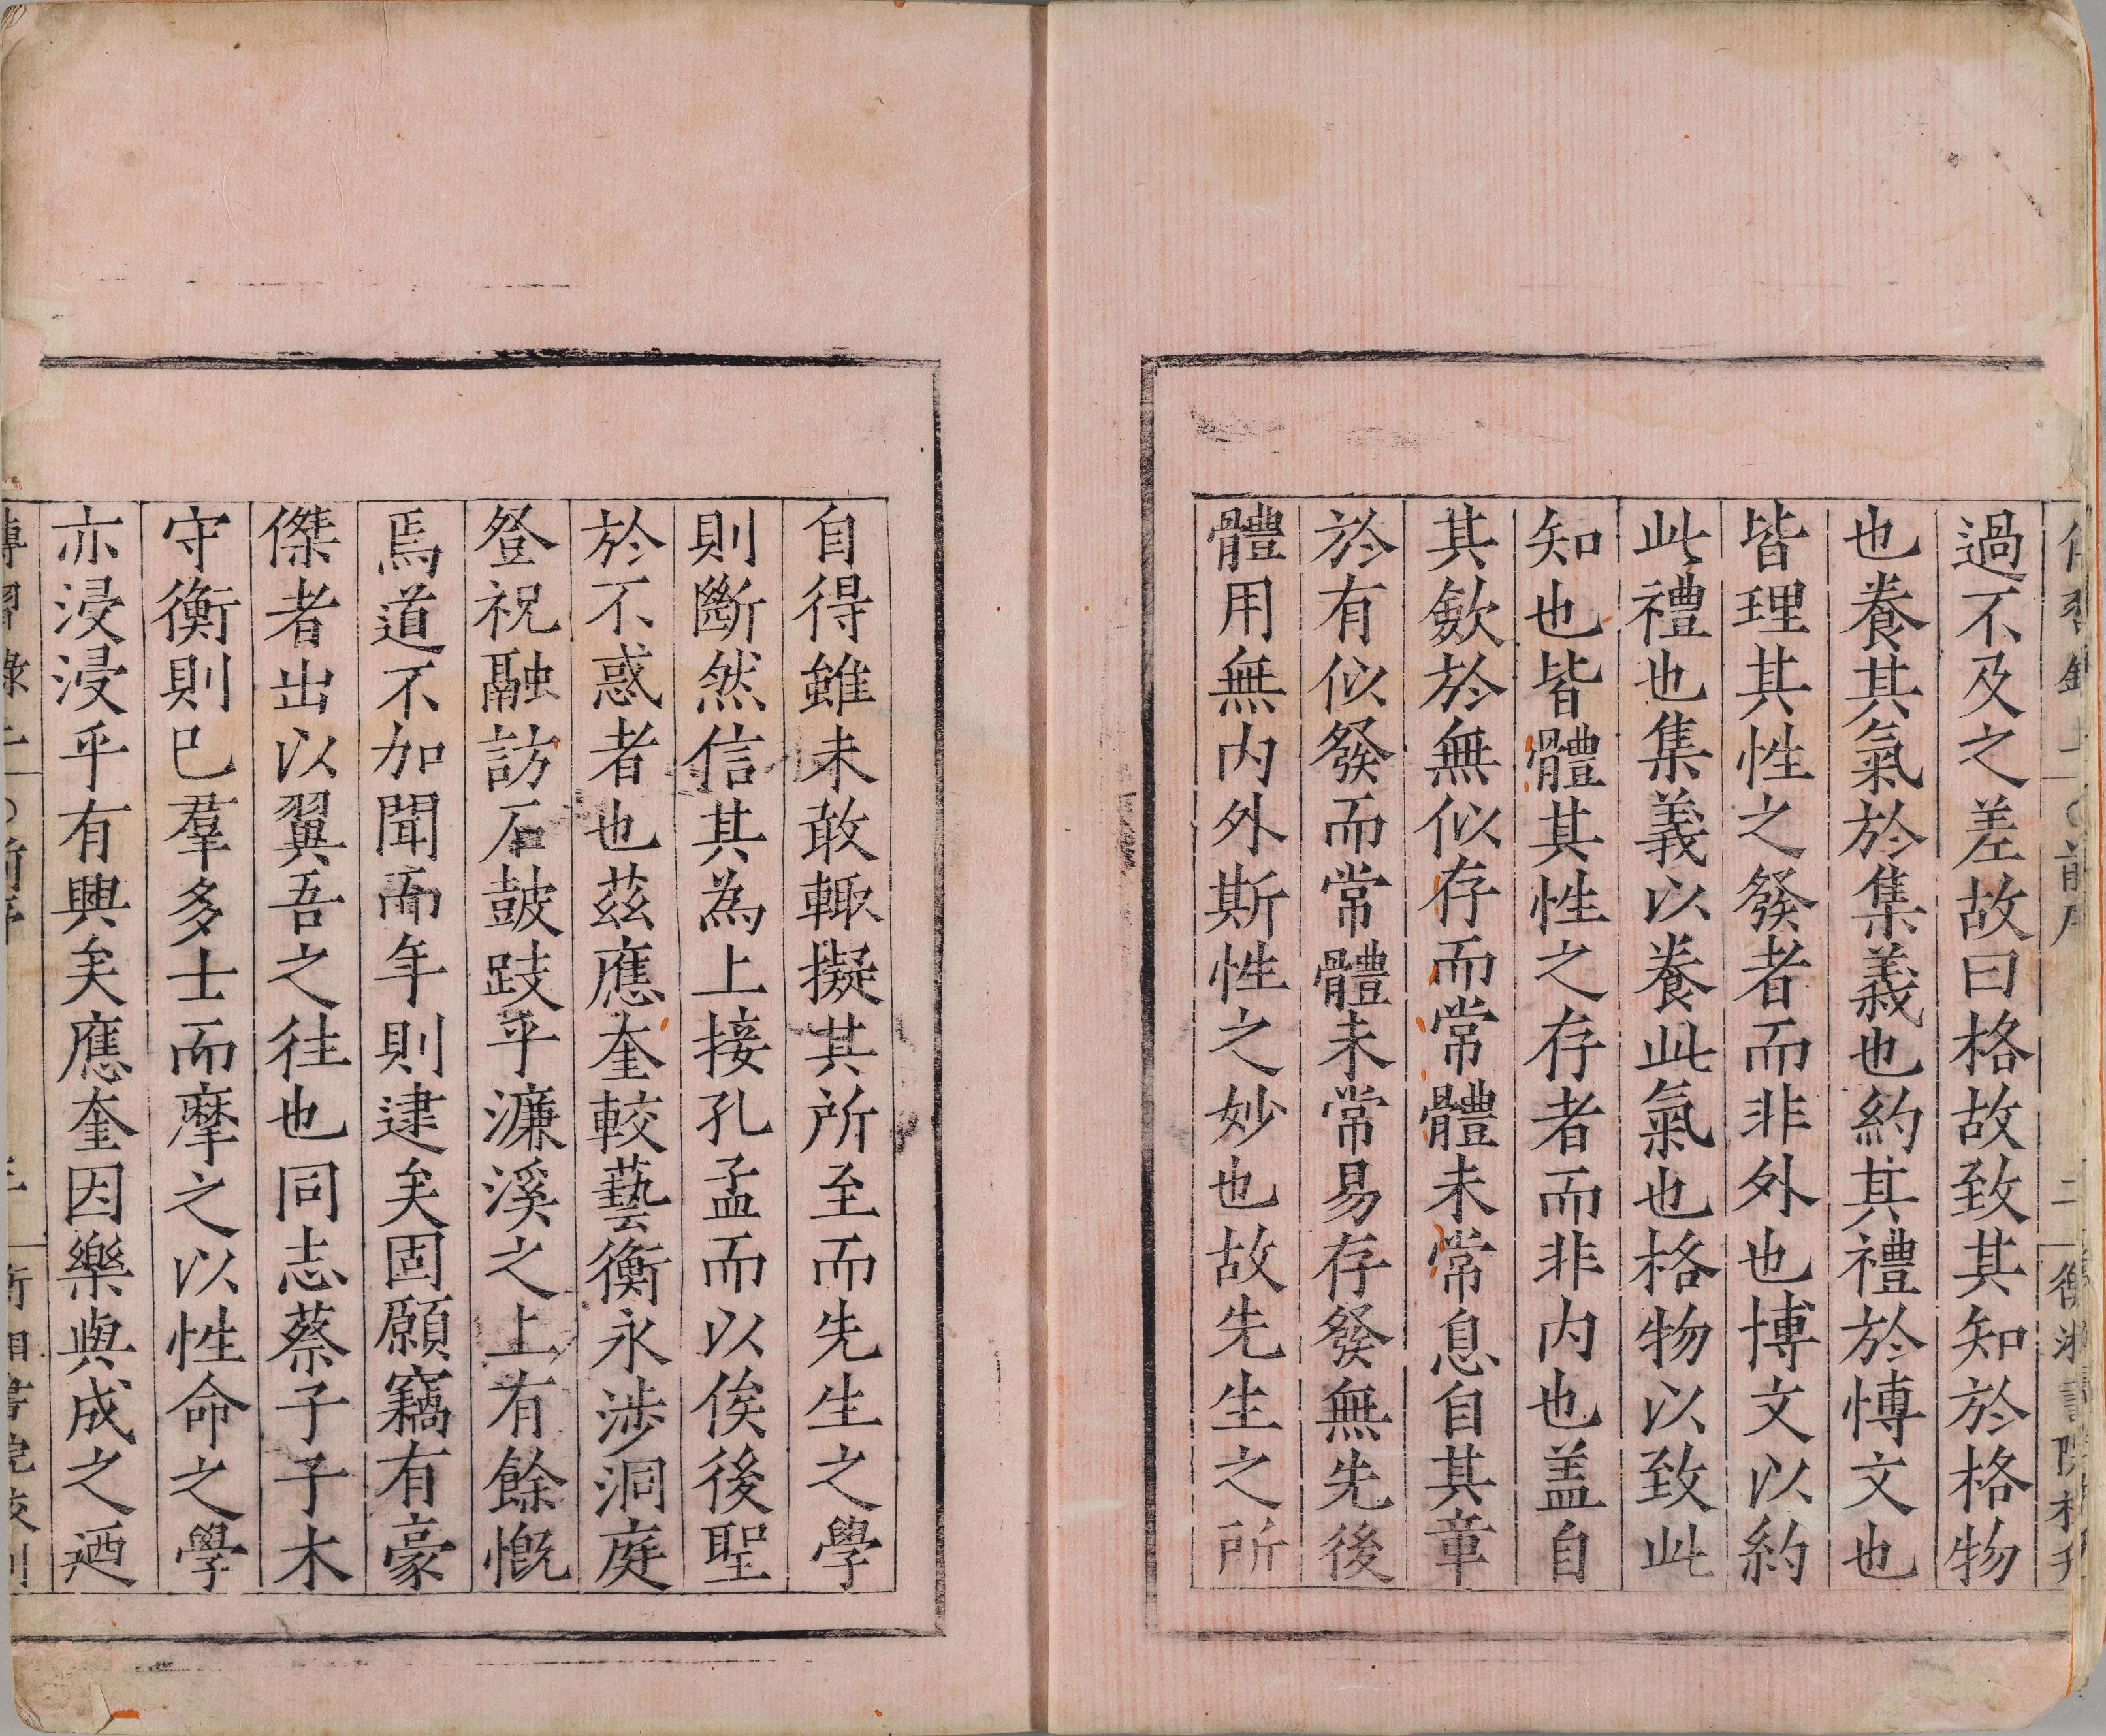 過不及之差故曰格故致其知於格物
也養其氣於集義也約其禮於博文也
皆理其性之發者而非外也博文以約
此禮也集義以養此氣也格物以致此
知也皆體其性之存者而非内也盖自
其斂於無似存而常體未常息自其章
於有似發而常體未常易存發無先後
體用無内外斯性之妙也故先生之所
自得雖未敢輙擬其所至而先生之學
則斷然信其為上接孔孟而以俟後聖
於不惑者也茲應奎較藝衡永渉洞庭
登祝融訪石皷跂乎濂溪之上有餘慨
焉道不加聞而年則逮矣固願竊有豪
傑者出以翼吾之徃也同志蔡子子木
守衡則巳羣多士而摩之以性命之學
亦浸浸乎有興矣應奎因樂與成之廼
傳習錄
衡湘書院